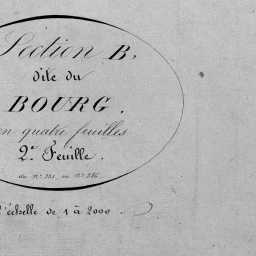 Section B,
dite du
BOURG.
en quatre feuilles
2e Feuille.
l'échelle de 1 à 2000.